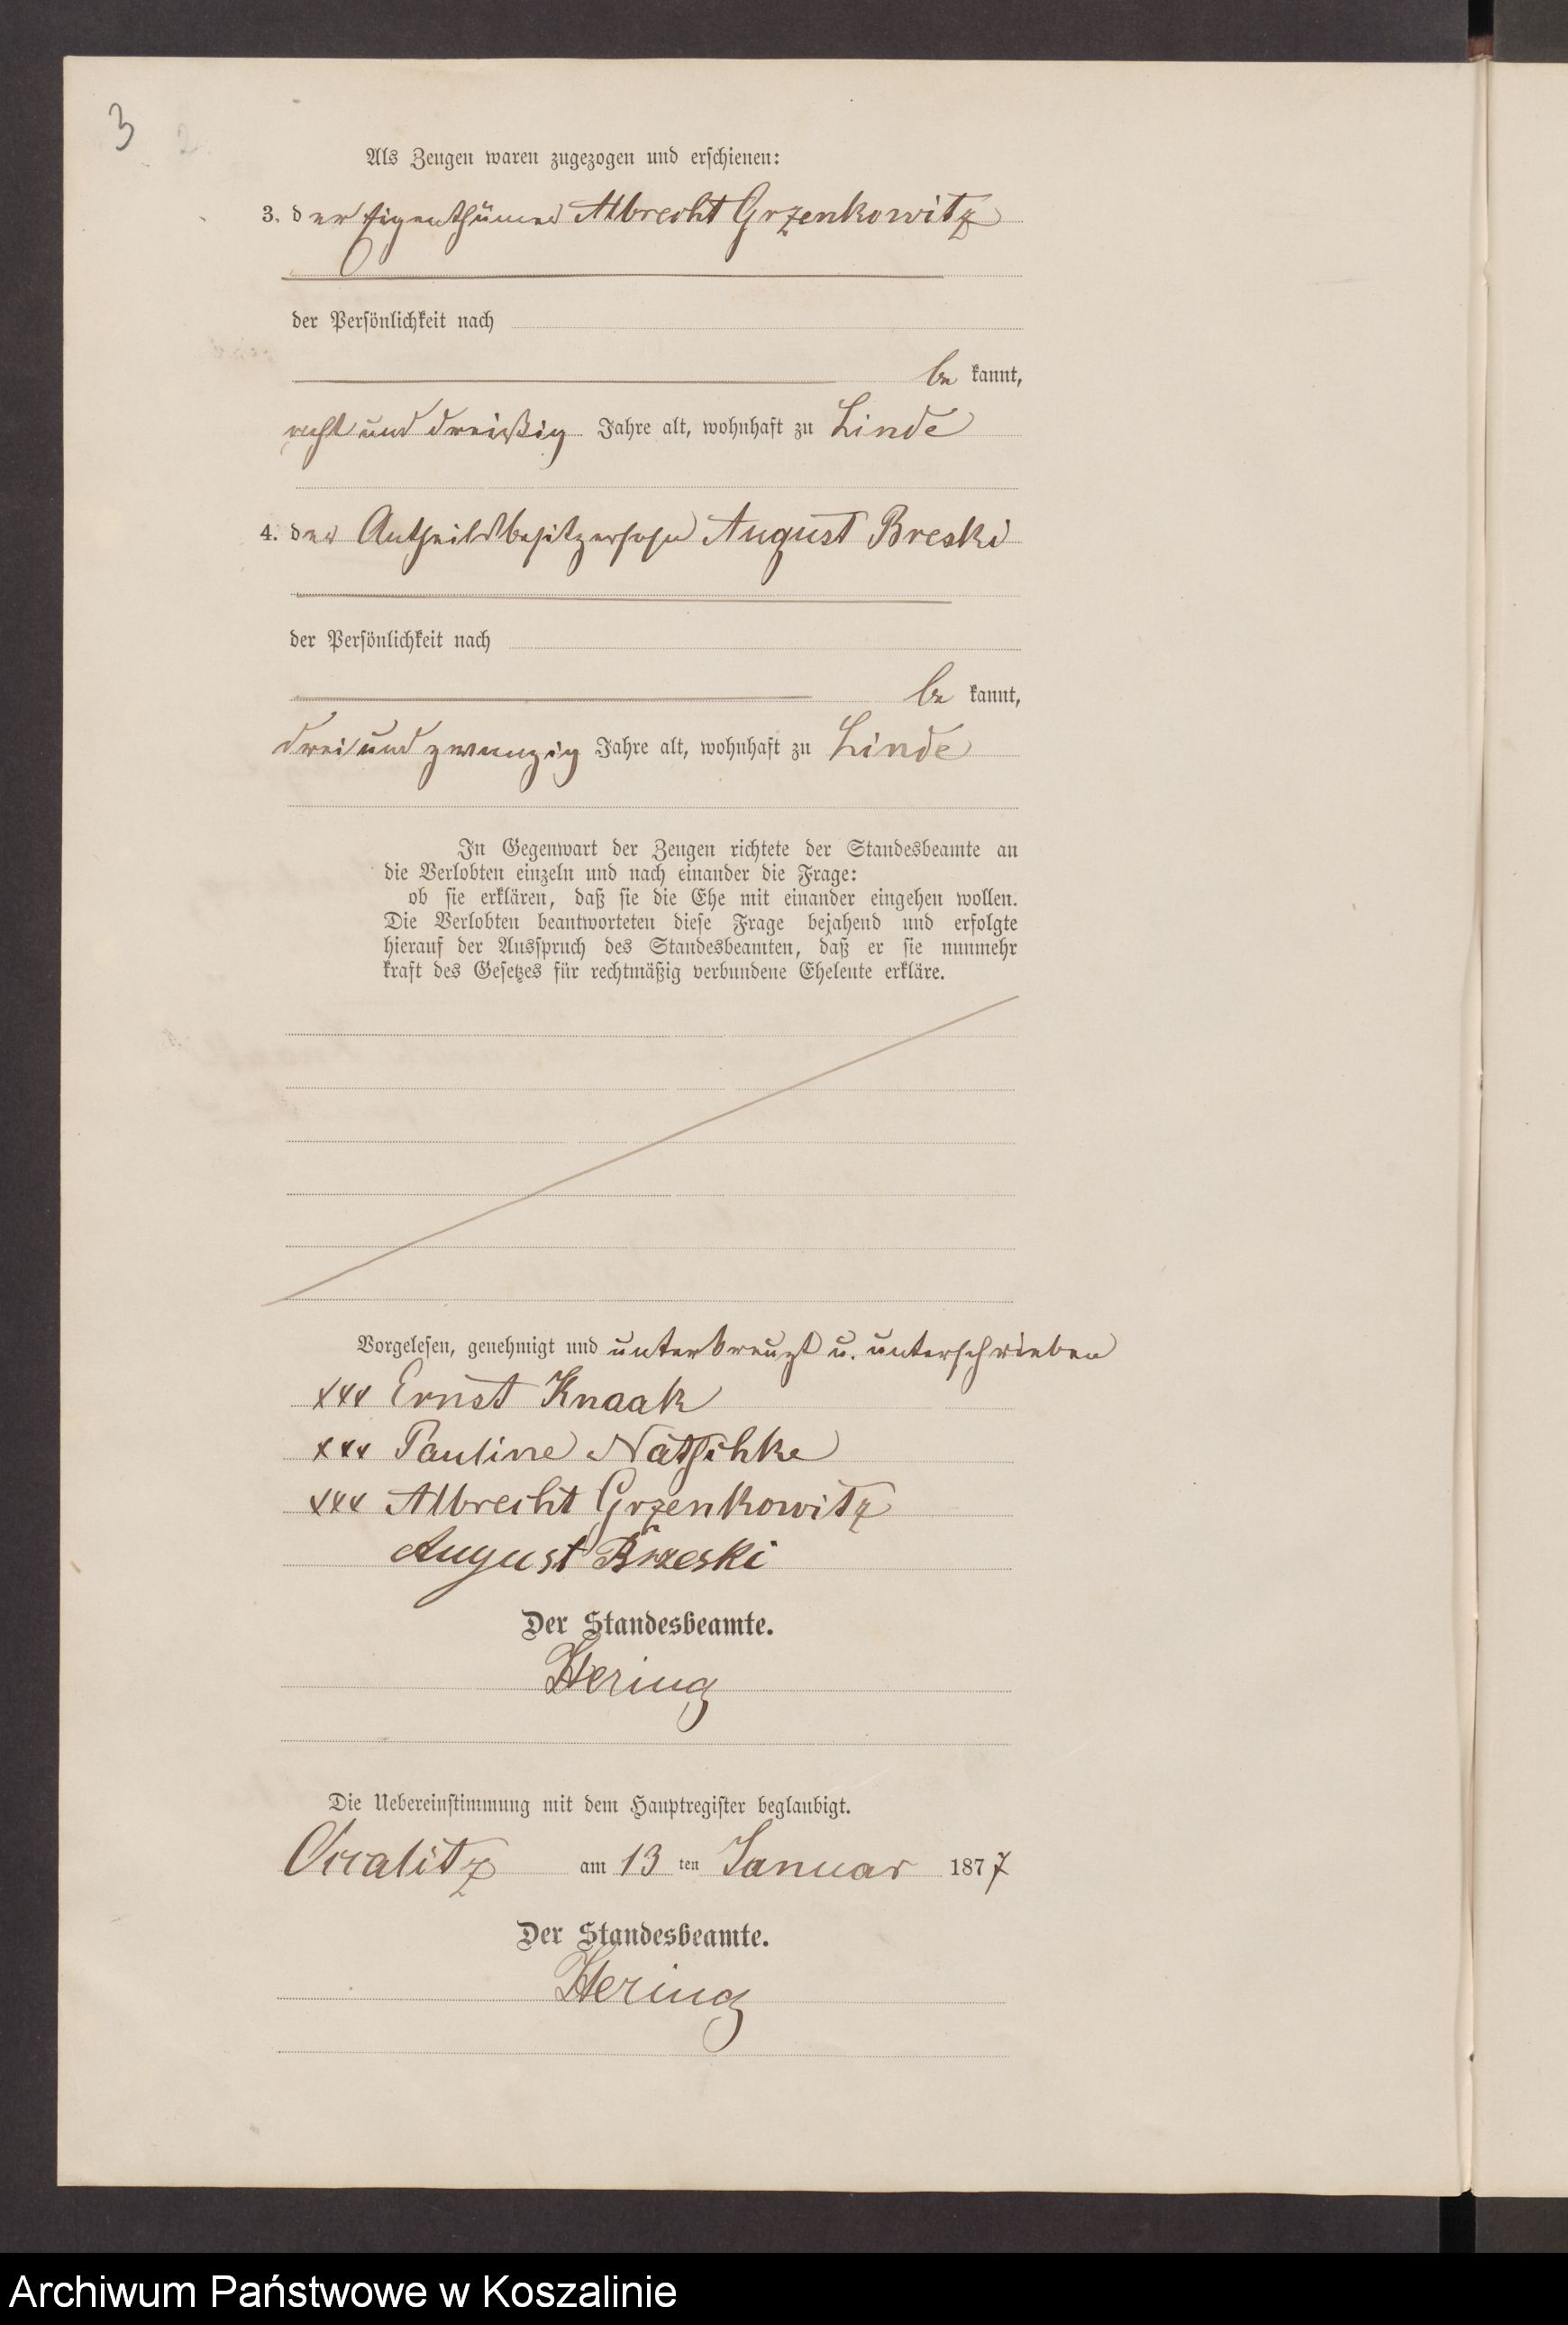 3
2.
Als Zeugen waren zugezogen und erschienen:
3. der Eigenthümer Albrecht Grzenkowitz
der Persönlichkeit nach
be kannt,
acht und dreißig Jahre alt, wohnhaft zu Linde
4. der Antheilsbesitzersohn August Breski
der Persönlichkeit nach
be kannt,
drei und zwanzig Jahre alt, wohnhaft zu Linde
In Gegenwart der Zeugen richtete der Standesbeamte an
die Verlobten einzeln und nach einander die Frage:
ob sie erklären, daß sie die Ehe mit einander eingehen wollen.
Die Verlobten beantworteten diese Frage bejahend und erfolgte
hierauf der Ausspruch des Standesbeamten, daß er sie nunmehr
kraft des Gesetzes für rechtmäßig verbundene Eheleute erkläre.
Vorgelesen, genehmigt und unterkreuzt u. unterschrieben
xxx Ernst Knaak
xxx Pauline Natschke
xxx Albrecht Grzenkowitz
August Brzeski
Der Standesbeamte.
Hering
Die Uebereinstimmung mit dem Hauptregister beglaubigt.
am 13 ten Januar 1877
Der Standesbeamte.
Hering
Archiwum Państwowe w Koszalinie